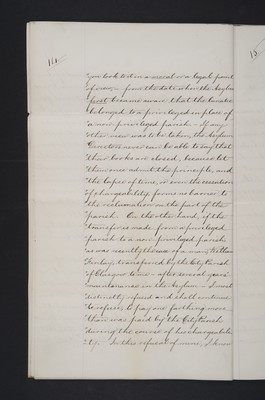 114.
15.
"you look to it in a moral or a legal point
"of view, – from the date when the Asylum
"first became aware that the lunatic
"belonged to a privileged in place of
"a non privileged parish. If any
"other view was to be taken, the Asylum
"Directors never can be able to say that
"their books are closed, because let
"them once admit the principle, and
"the lapse of time, or even the cessation
"of chargeability forms no barrier to
"the reclamation on the part of the
"parish. On the other hand, if the
"transfer is made from a privileged
"parish to a non privileged parish
"as was recently the case of a man,
"Finlay, transferred by the City Parish
"of Glasgow to me – after several years'
"maintenance in the Asylum – I most
"distinctly refused and shall continue
"to refuse, to pay one farthing more
"than was paid by the City Parish
"during the course of his chargeabili-
"ty. In this refusal of mine, I know